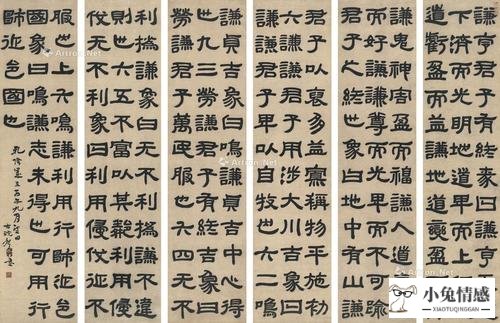 謙亨君子有終彖曰謙亨天道
下濟而光明地道卑而上行天
道虧盈而益謙地道變盈而流
謙鬼神害盈而福謙人道惡盈
而好謙謙尊而光卑而不可踰
君子之終也象曰地中有山謙
君子以裒多益寡稱物平施初
六謙謙君子用涉大川吉象曰
謙謙君子卑以自牧也六二鳴
謙貞吉象曰鳴謙貞吉中心得
也九三勞謙君子有終吉象曰
勞謙君子萬民服也六四无不
利撝謙象曰无不利撝謙不違
則也六五不富以其鄰利用侵
伐无不利象曰利用侵伐征不
服也上六鳴謙利用行師征邑
國象曰鳴謙志未得也可用行
師征邑國也
小兔情感
XIAOTUQINGGAN